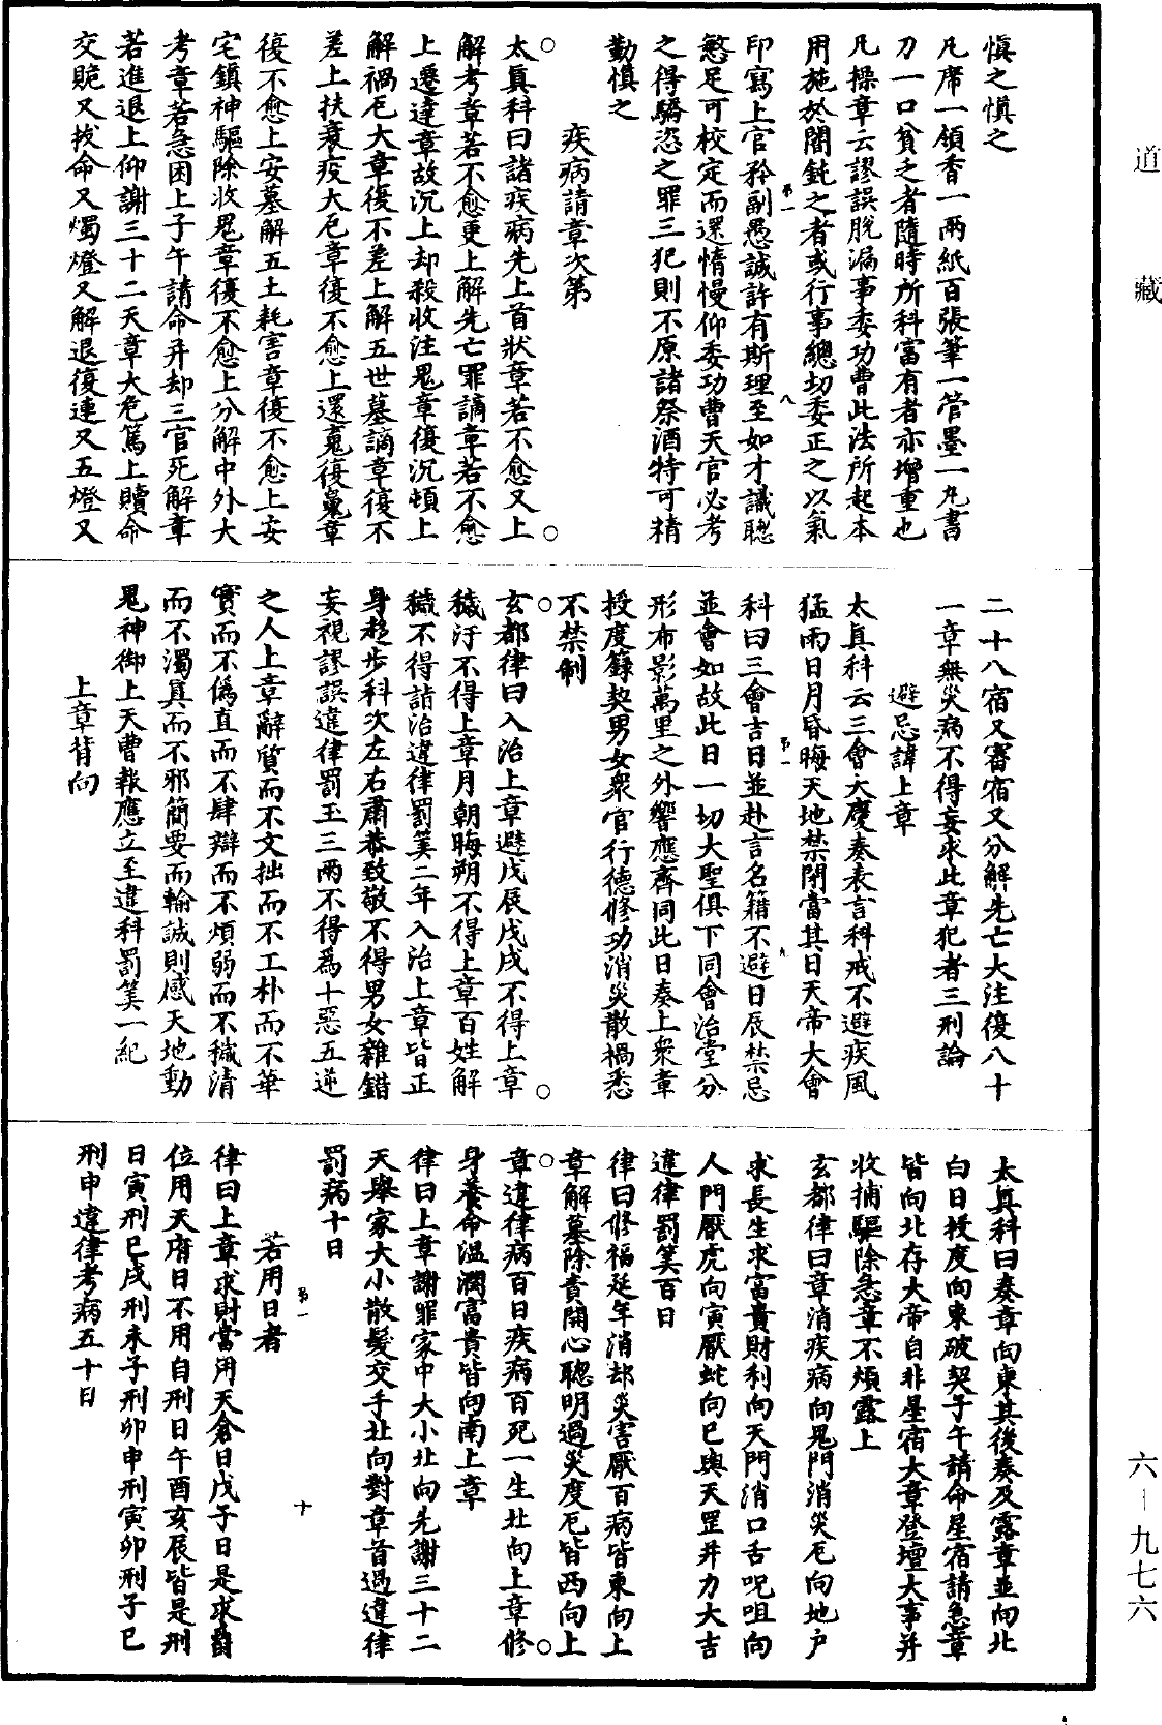 道藏
慎之慎之
凡席一領香一兩紙百張筆一管墨一丸書
刀一口貧乏者隨時所科富有者亦增重也
凡操章云謬誤脫漏事委功曹此法所起本
用施於闇鈍之者或行事總切委正之以氣
第一
八
印寫上官矜副愚誠許有斯理至如才識聰
慜足可校定而還惰慢仰委功曹天官必考
之得驕恣之罪三犯則不原諸祭酒特可精
勤慎之
疾病請章次第
太真科曰諸疾病先上首狀章若不愈又上
解考章若不愈更上解先亡罪謫章若不愈
上遷達章故沉上却殺收注鬼章復沉頓上
解禍厄大章復不差上解五世墓謫章復不
差上扶衰疫大厄章復不愈上還䰟復魄章
復不愈上安墓解五土耗害章復不愈上安
宅鎮神驅除收鬼章復不愈上分解中外大
考章若急困上子午請命并却三官死解章
若進退上仰謝三十二天章大危篤上贖命
交貺又拔命又燭燈又解退復連又五燈又
二十八宿又審宿又分解先亡大注復八十
一章無災病不得妄求此章犯者三刑論
避忌諱上章
太真科云三會大慶奏表言科戒不避疾風
猛雨日月昏晦天地禁閉當其日天帝大會
第一
九
科曰三會吉日並赴言名籍不避日辰禁忌
並會如故此日一切大聖俱下同會治堂分
形布影萬里之外響應齊同此日奏上眾章
授度籙契男女眾官行德修功消災散禍悉
不禁制
玄都律曰入治上章避戊辰戊戌不得上章
穢汙不得上章月朝晦朔不得上章百姓解
穢不得詣治違律罰筭二年入治上章皆正
身趍步科次左右肅恭致敬不得男女雜錯
妄視謬誤違律罰玉三兩不得為十惡五逆
之人上章辭質而不文拙而不工朴而不華
實而不偽直而不肆辯而不煩弱而不穢清
而不濁真而不邪簡要而輸誠則感天地動
鬼神御上天曹報應立至違科罰筭一紀
上章背向
太真科曰奏章向東其後奏及露章並向北
白日授度向東破契子午請命星宿請急章
皆向北存大帝自非星宿大章登壇大事并
收捕驅除急章不頻露上
玄都律曰章消疾病向鬼門消災厄向地戶
求長生求富貴財利向天門消口舌呪咀向
人門厭虎向寅厭蛇向巳與天罡并力大吉
違律罰筭百日
律曰修福延年消却災害厭百病皆東向上
章解墓除責開心聰明過災度厄皆西向上
章違律病百日疾病百死一生北向上章修
身養命溫潤富貴皆向南上章
律曰上章謝罪家中大小北向先謝三十二
天舉家大小散髮交手北向對章首過違律
罰病十日
第一
十
若用日者
律曰上章求財當用天倉日戊子日是求爵
位用天府日不用自刑日午酉亥辰皆是刑
日寅刑巳戌刑未子刑卯申刑寅卯刑子巳
刑申違律考病五十日
六－九七六